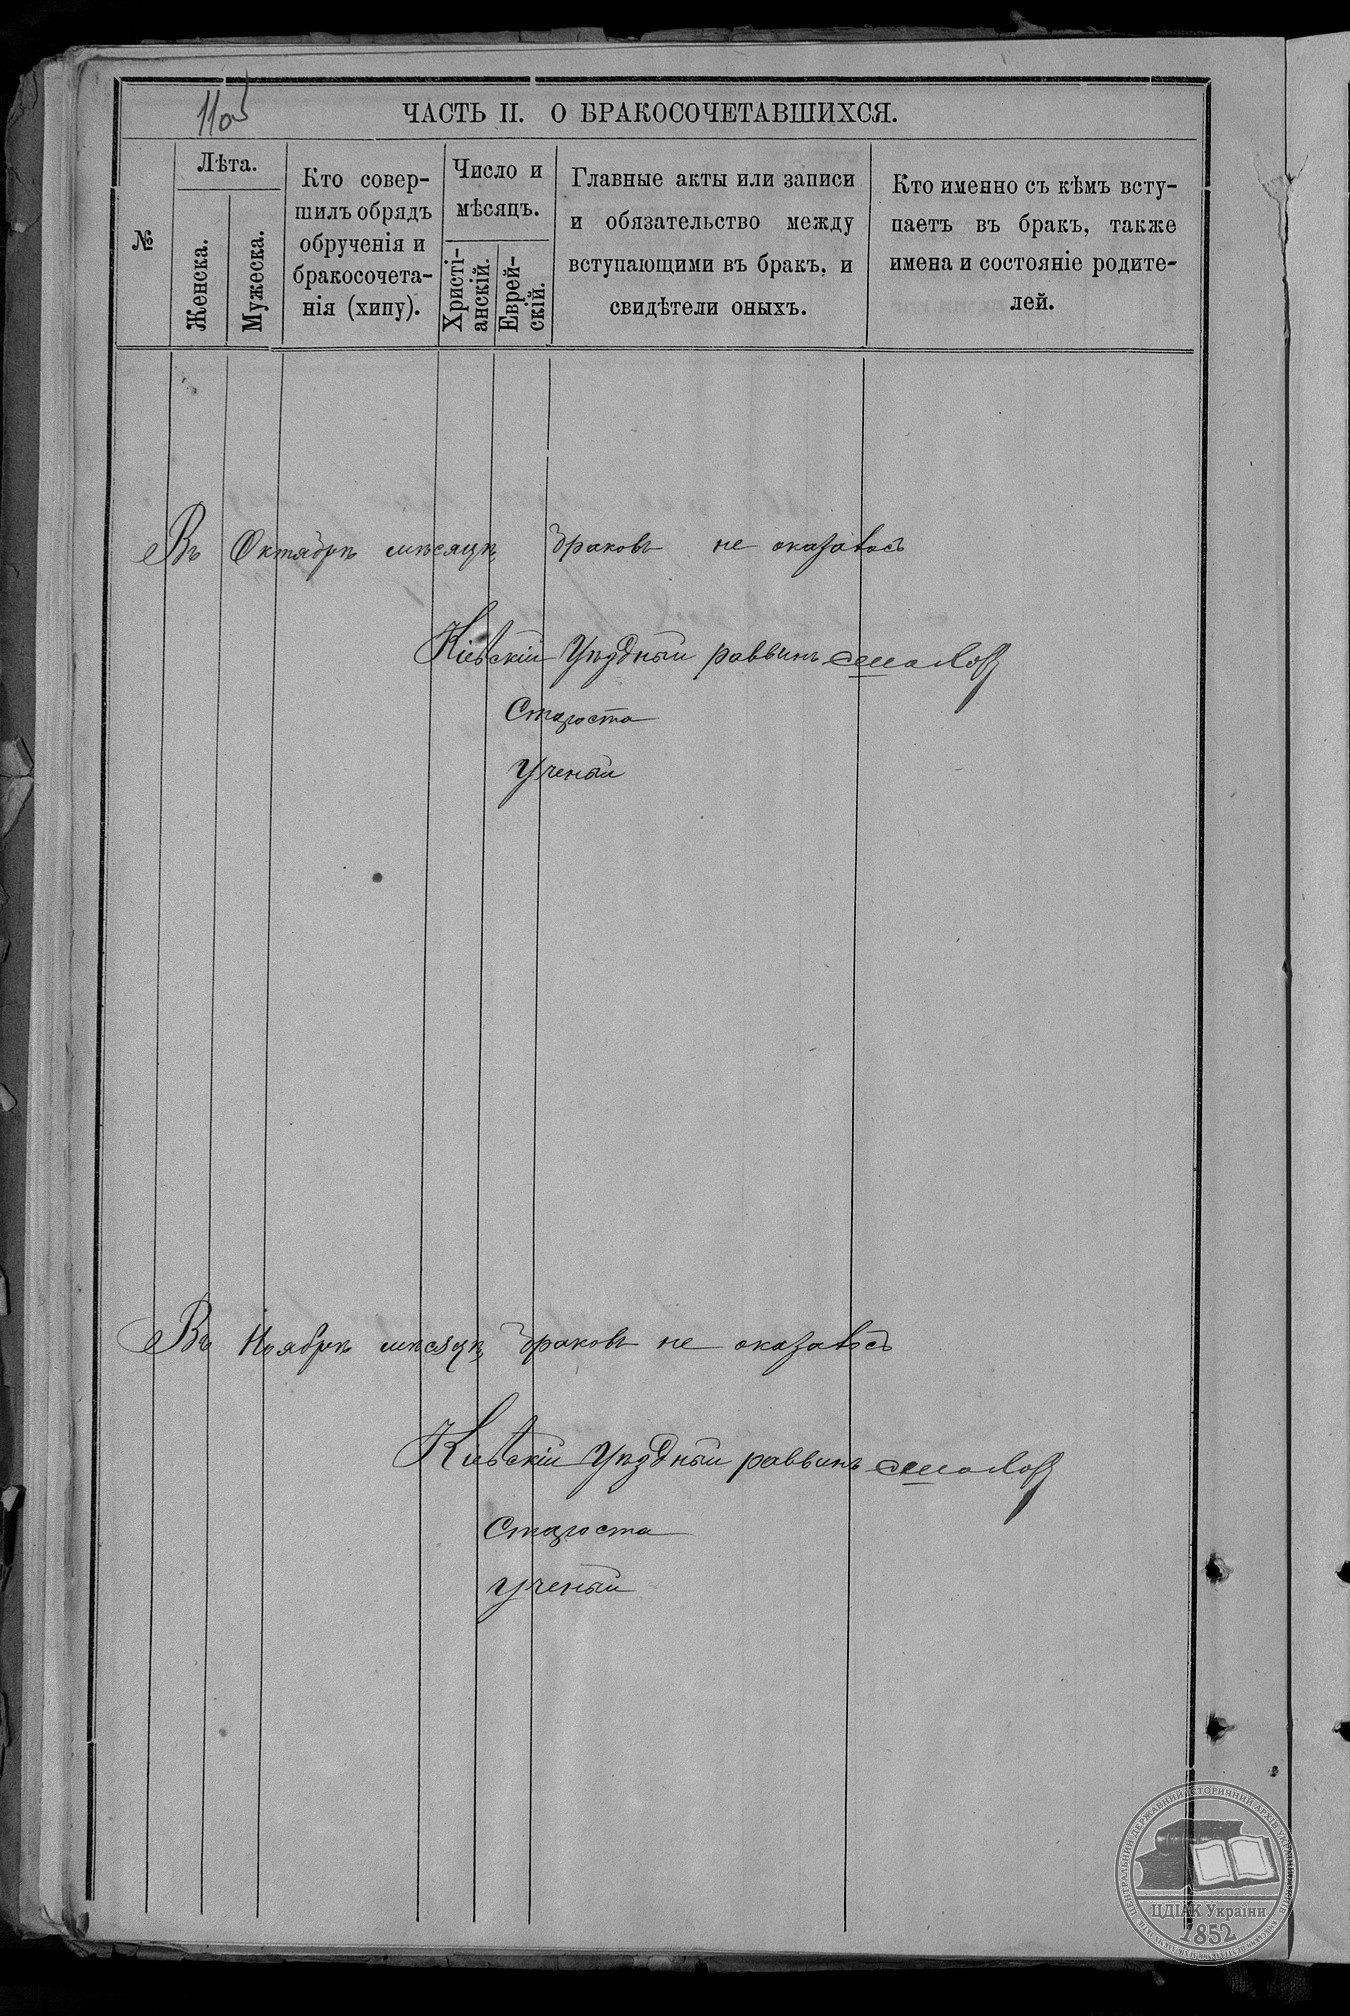 110об
ЧАСТЬ II. О БРАКОСОЧЕТАВШИХСЯ.
№
Лѣта.
Женска.
Мужеска.
Кто совер-
шилъ обрядъ
обрученія и
бракосочета-
нія (хипу).
Число и
мѣсяцъ.
Христі-
анскій.
Еврей-
скій.
Главные акты или записи
и обязательство между
вступающими въ бракъ, и
свидѣтели оныхъ.
Кто именно съ кѣмъ всту-
паетъ въ бракъ, также
имена и состояніе родите-
лей.
Въ Октябрѣ мѣсяцѣ браковъ не оказалось
Кіевскій Уѣздный раввинъ
Староста
Ученый
Въ Ноябрѣ мѣсяцѣ браковъ не оказалось
Кіевскій Уѣздный раввинъ
Староста
Ученый
ЦЕНТРАЛЬНИЙ ДЕРЖАВНИЙ ІСТОРИЧНИЙ АРХІВ УКРАЇНИ
ЦДІАК України
1852